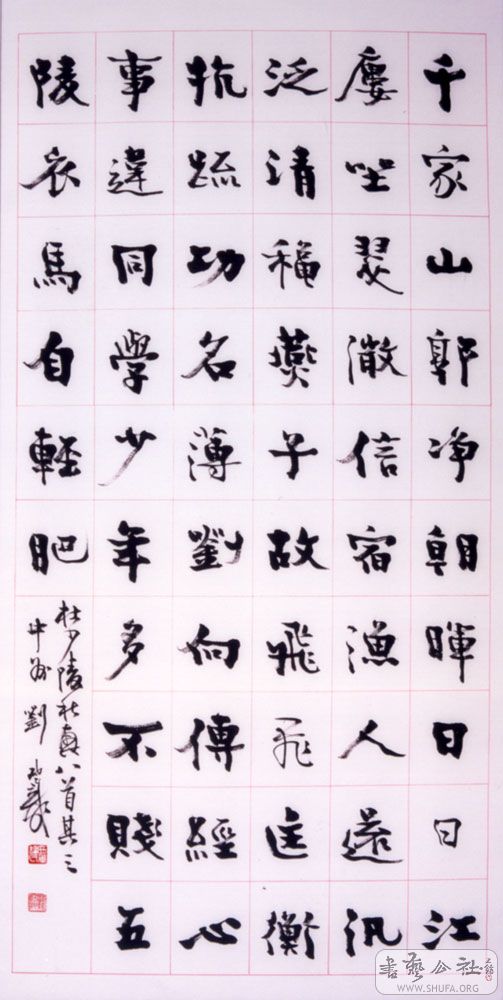 千家山郭净朝暉日日江
廔坐翠溦信宿漁人還汎
泛清穐燕子故飛飛匡衡
抗疏功名薄劉向傳經心
事違同學少年多不賤五
陵衣馬自輕肥
杜少陵秋興八首其三
中州劉
書藝公社
WWW.SHUFA.ORG